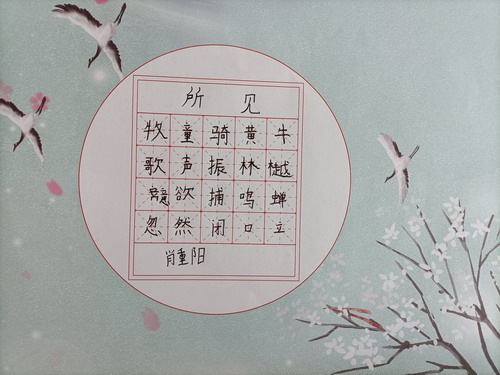 所见
牧童骑黄牛
歌声振林樾
意欲捕鸣蝉
忽然闭口立
肖重阳